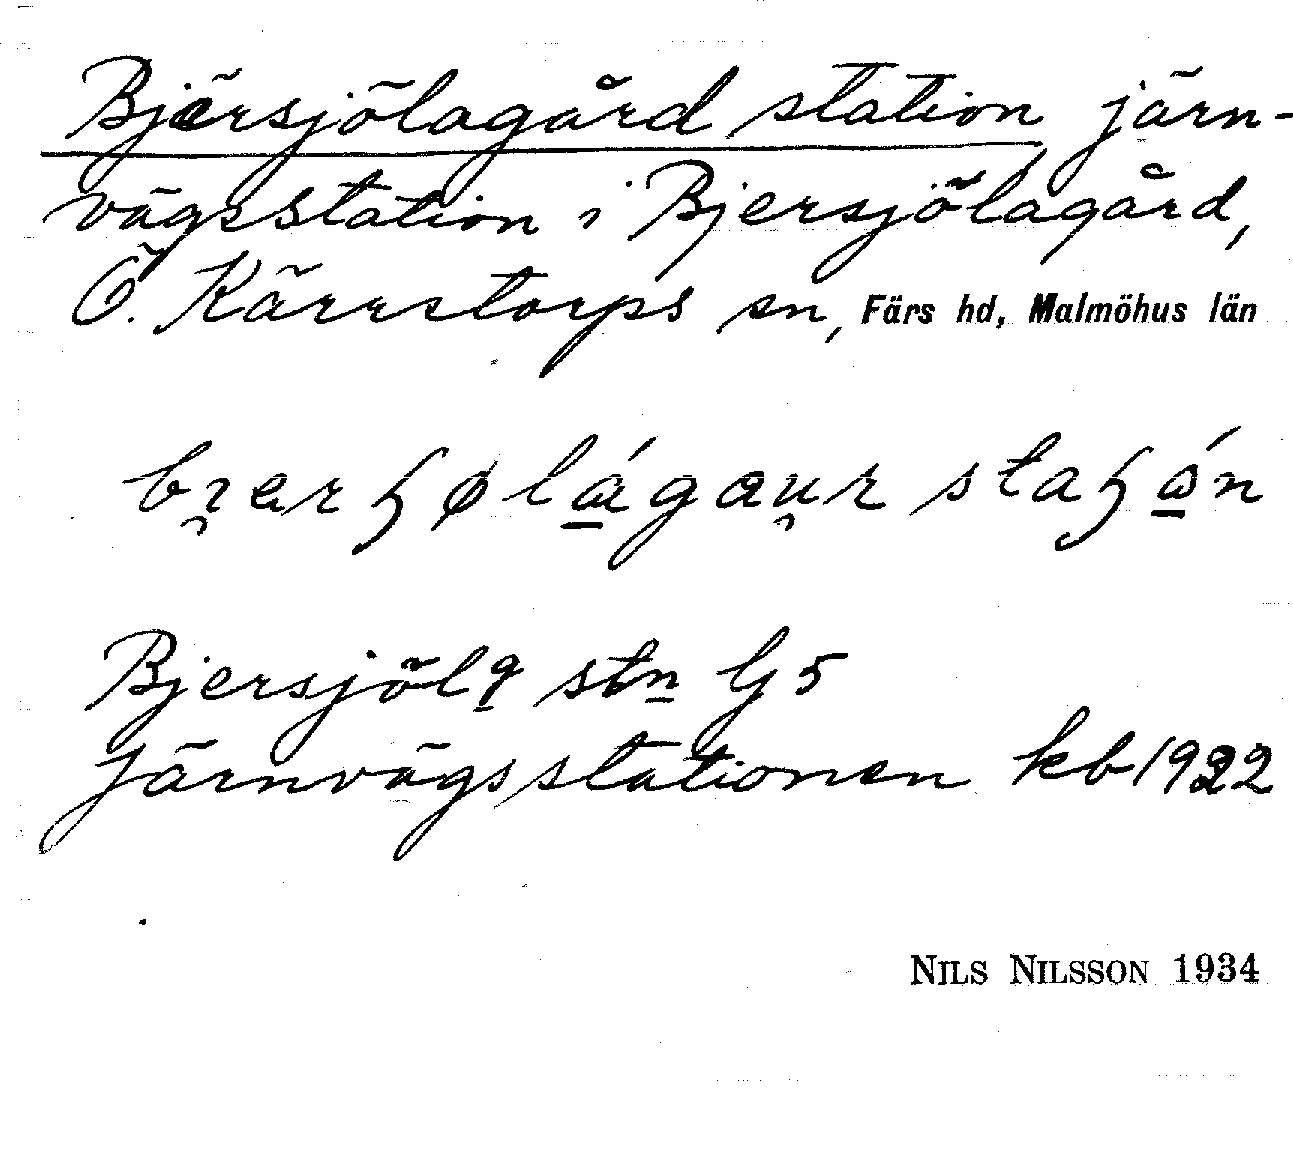 Bjärsjölagård station järn-
vägsstation i Bjersjölagård,
Ö. Kärrstorps sn, Färs hd, Malmöhus län
Bjersjölg stn G5
Järnvägsstationen kb 1922
NILS NILSSON 1934